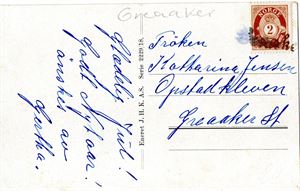 Greaaker
Glædelig Jul!
Godt Nytaar!
ønskes av
Eneret J. H. K. A/S. Serie 2229 18.
NORGE
2
Frøken
Katharina Jensen
Opstad kleven
Greaaker St.